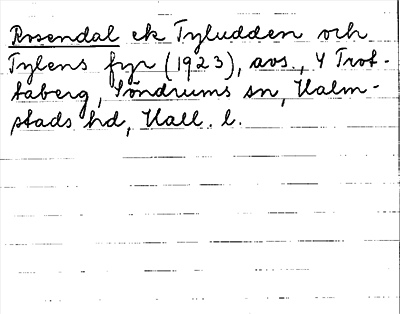 Rosendal ek Tyludden och
Tylens fyr (1923), avs., 4 Trot-
taberg, Söndrums sn, Halm-
stads hd, Hall. l.